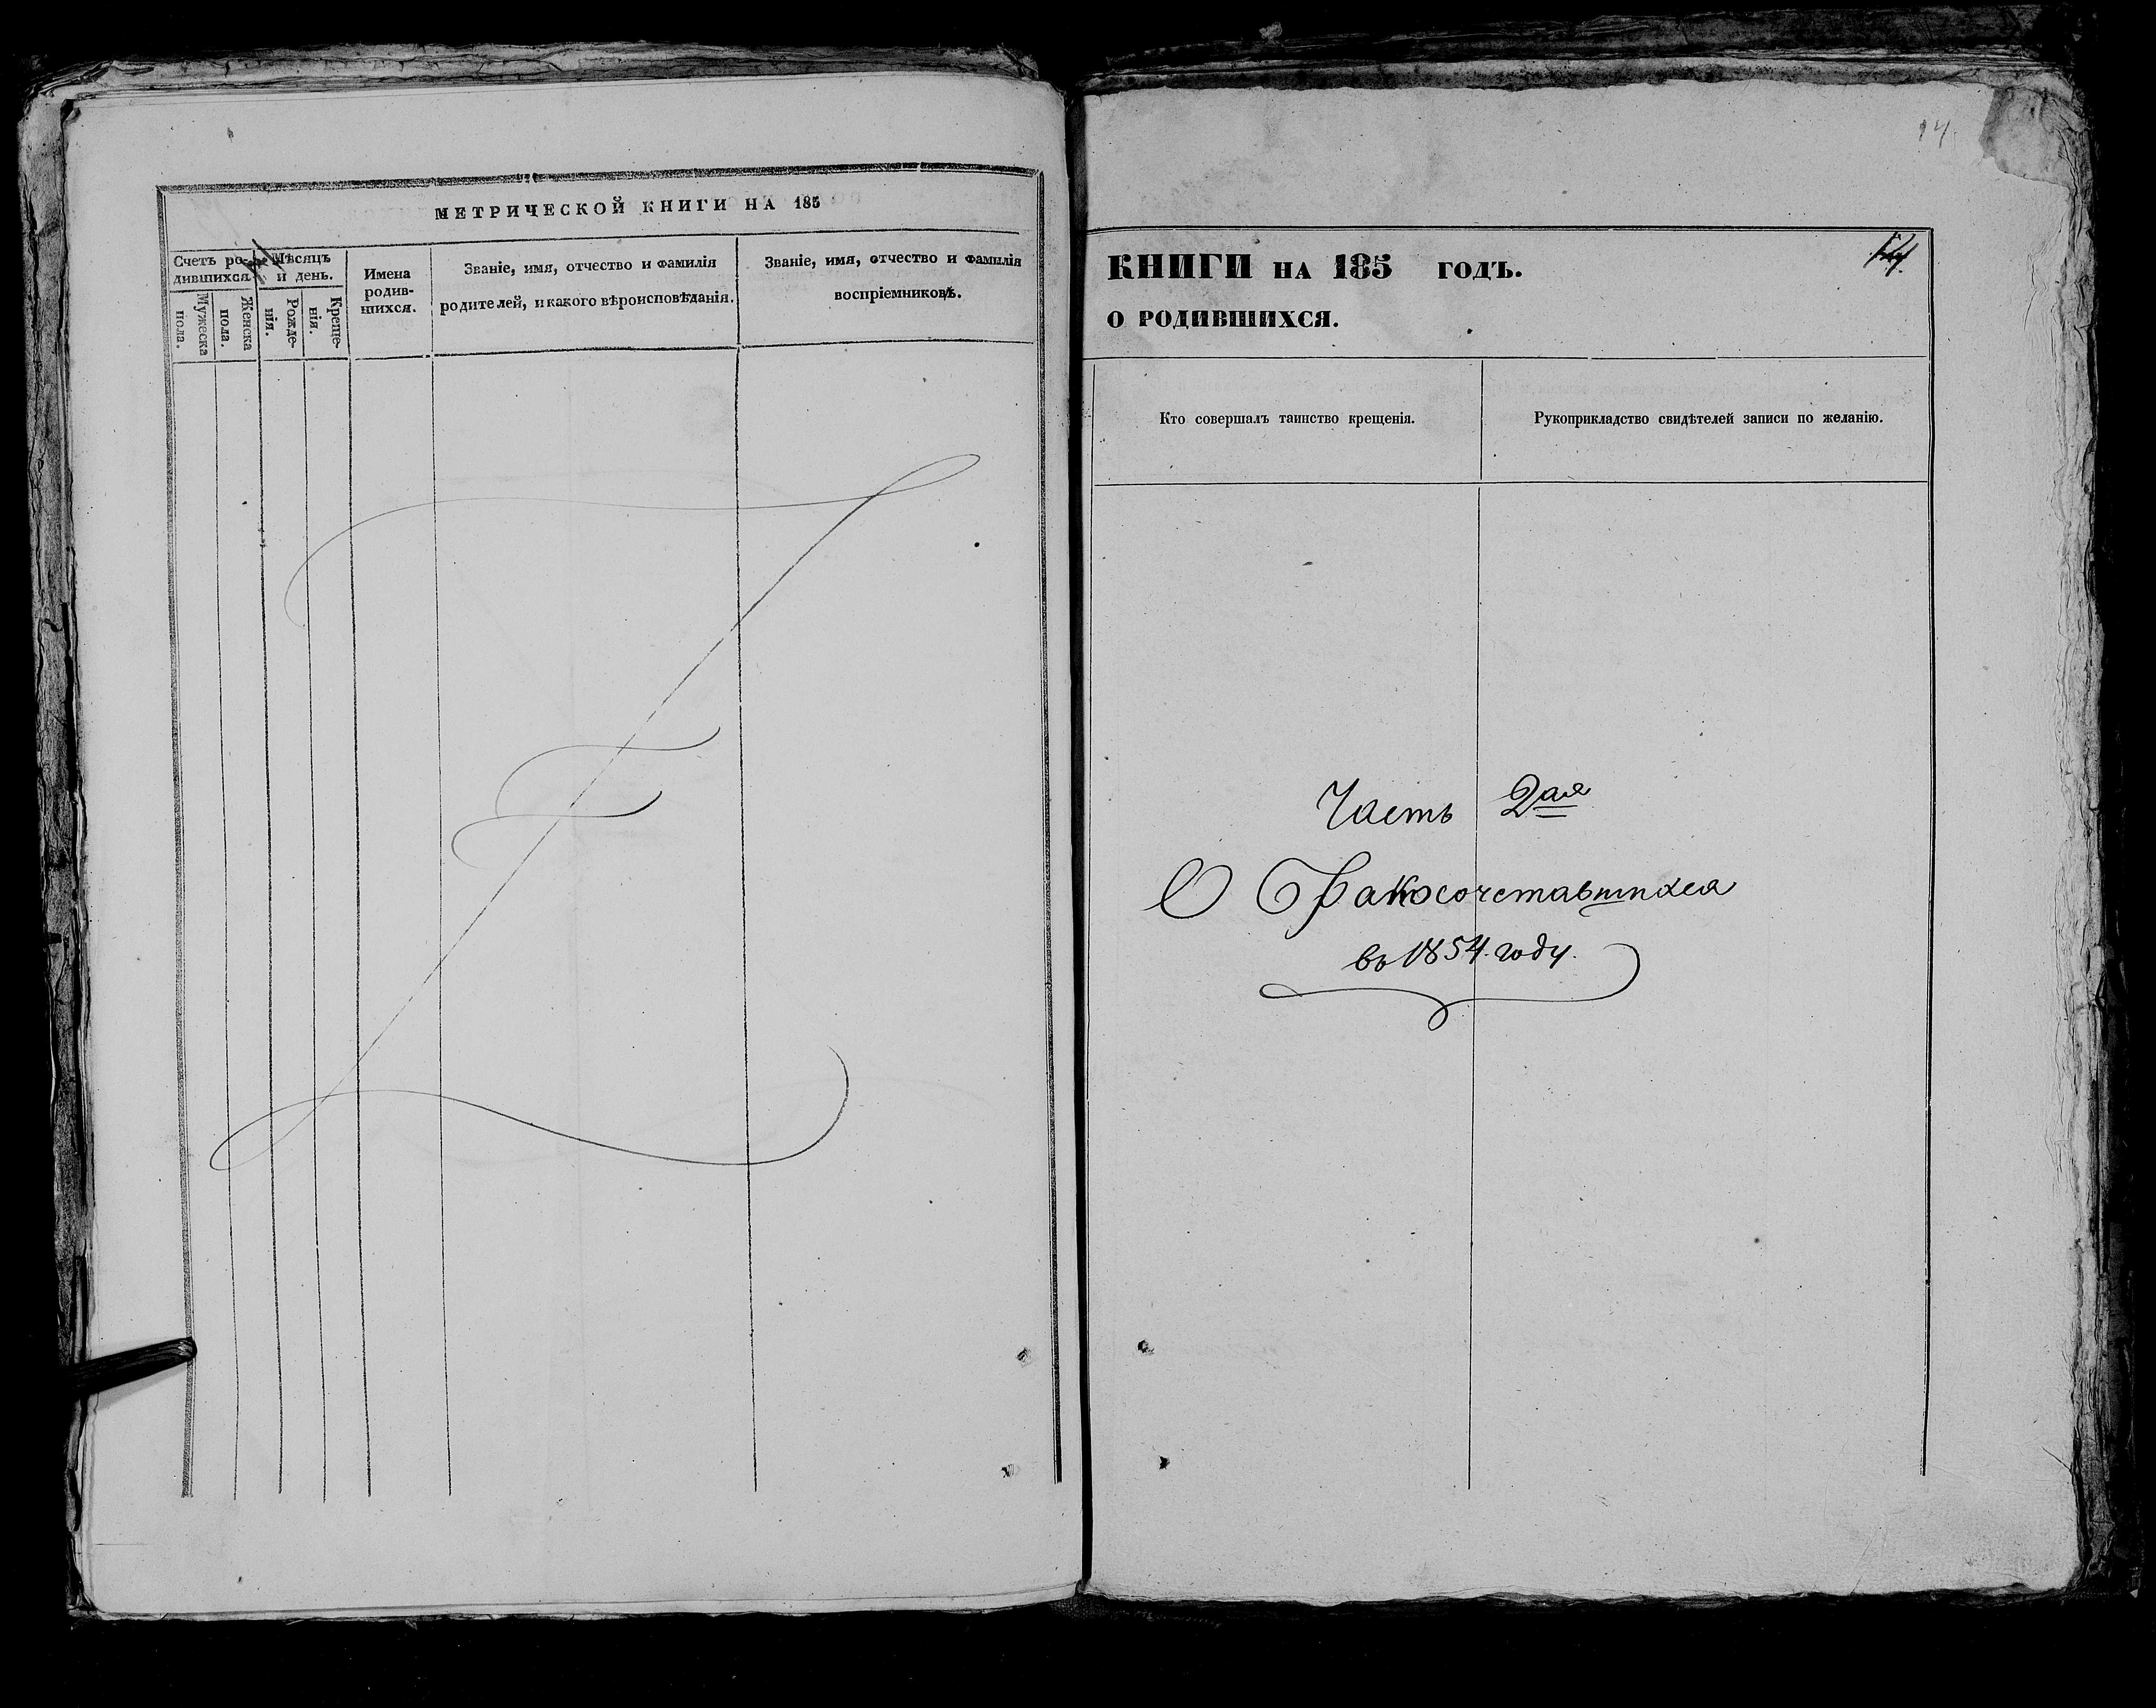 МЕТРИЧЕСКОЙ КНИГИ НА 185
Счетъ ро-
дившихся.
Мѣсяцъ
и день.
Мужеска
пола.
Женска
пола.
Рожде-
нія.
Креще-
нія.
Имена
родив-
шихся.
Званіе, имя, отчество и фамилія
родителей, и какого вѣроисповѣданія.
Званіе, имя, отчество и фамилія
воспріемниковъ.
14
КНИГИ НА 185 ГОДЪ.
О РОДИВШИХСЯ.
Кто совершалъ таинство крещенія.
Рукоприкладство свидѣтелей записи по желанію.
Часть 2ая
О Бракосочетавшихся
въ 1854. году.